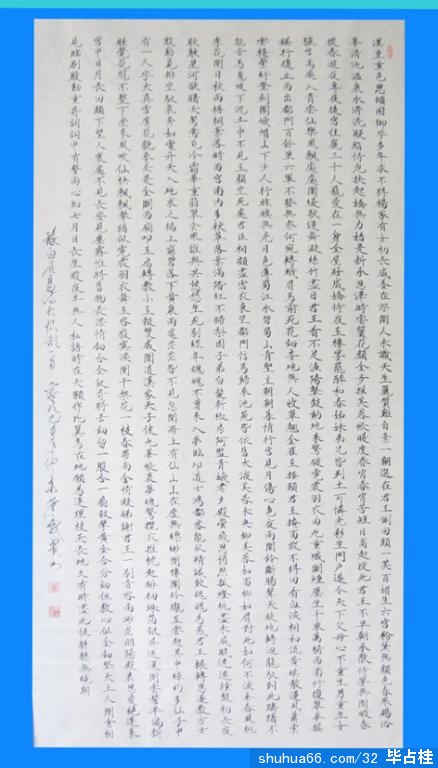 漢皇重色思傾國御宇多年求不得楊家有女初長成養在深閨人未識天生麗質難自棄一朝選在君王側回頭一笑百媚生六宮粉黛無顏色春寒賜浴
華清池溫泉水滑洗凝脂侍兒扶起嬌無力始是新承恩澤時雲鬢花顏金步搖芙蓉帳暖度春宵春宵苦短日高起從此君王不早朝承歡侍宴無閒暇春
從春遊夜專夜後宮佳麗三千人三千寵愛在一身金屋妝成嬌侍夜玉樓宴罷醉和春姊妹弟兄皆列土可憐光彩生門戶遂令天下父母心不重生男重生女
驪宮高處入青雲仙樂風飄處處聞緩歌慢舞凝絲竹盡日君王看不足漁陽鼙鼓動地來驚破霓裳羽衣曲九重城闕煙塵生千乘萬騎西南行翠華搖
搖行復止西出都門百餘里六軍不發無奈何宛轉蛾眉馬前死花鈿委地無人收翠翹金雀玉搔頭君王掩面救不得回看血淚相和流黃埃散漫風蕭索
雲棧縈紆登劍閣峨嵋山下少人行旌旗無光日色薄蜀江水碧蜀山青聖主朝朝暮暮情行宮見月傷心色夜雨聞鈴腸斷聲天旋地轉迴龍馭到此躊躇不
能去馬嵬坡下泥土中不見玉顏空死處君臣相顧盡霑衣東望都門信馬歸歸來池苑皆依舊太液芙蓉未央柳芙蓉如面柳如眉對此如何不淚垂春風桃
李花開日秋雨梧桐葉落時西宮南內多秋草落葉滿階紅不掃梨園子弟白髮新椒房阿監青娥老夕殿螢飛思悄然孤燈挑盡未成眠遲遲鐘鼓初長夜
耿耿星河欲曙天鴛鴦瓦冷霜華重翡翠衾寒誰與共悠悠生死別經年魂魄不曾來入夢臨邛道士鴻都客能以精誠致魂魄為感君王輾轉思遂教方士
殷勤覓排空馭氣奔如電升天入地求之遍上窮碧落下黃泉兩處茫茫皆不見忽聞海上有仙山山在虛無縹緲間樓閣玲瓏五雲起其中綽約多仙子中
有一人字太真雪膚花貌參差是金闕西廂叩玉扃轉教小玉報雙成聞道漢家天子使九華帳裏夢魂驚攬衣推枕起徘徊珠箔銀屏迤邐開雲鬢半偏新
睡覺花冠不整下堂來風吹仙袂飄飄舉猶似霓裳羽衣舞玉容寂寞淚闌干梨花一枝春帶雨含情凝睇謝君王一別音容兩渺茫昭陽殿裏恩愛絕蓬萊
宮中日月長回頭下望人寰處不見長安見塵霧惟將舊物表深情鈿合金釵寄將去釵留一股合一扇釵擘黃金合分鈿但教心似金鈿堅天上人間會相
見臨別殷勤重寄詞詞中有誓兩心知七月七日長生殿夜半無人私語時在天願作比翼鳥在地願為連理枝天長地久有時盡此恨綿綿無絕期
shuhua66.com/32 毕占桂